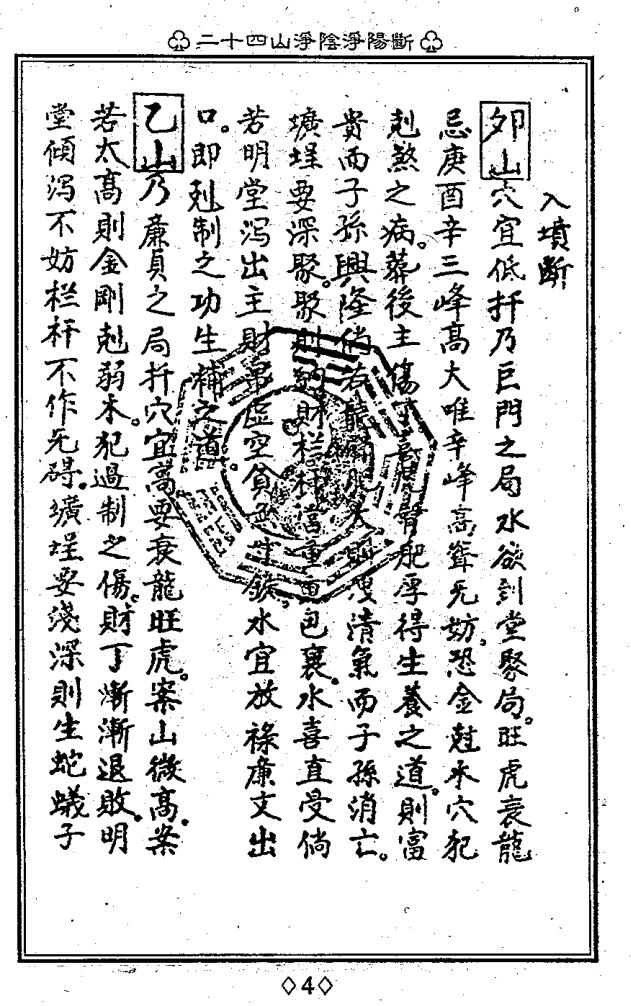 二十四山淨陰淨陽斷
入墳斷
夘山穴宜低扦乃巨門之局水欲到堂聚局。旺虎衰龍
忌庚酉辛三峰高大唯辛峰高聳无妨。恐金尅木穴犯
尅煞之病。葬後主傷丁喜虎臂肥厚得生養之道。則富
貴而子孫興隆倘右龍肥大洩清氣而子孫消亡。
壙埕要深聚。聚則納財栏杆當重包裹。水喜直受倘
若明堂瀉出主財帛匱空貧。水宜放祿廉文出
口。即尅制之功生補之道。
乙山乃廉貞之局扦穴宜高要衰龍旺虎。案山微高。案
若太高則金剛尅弱木。犯過制之傷。財丁漸漸退敗。明
堂傾瀉不妨栏杆不作无碍。壙埕要淺深則生蛇蟻子
4